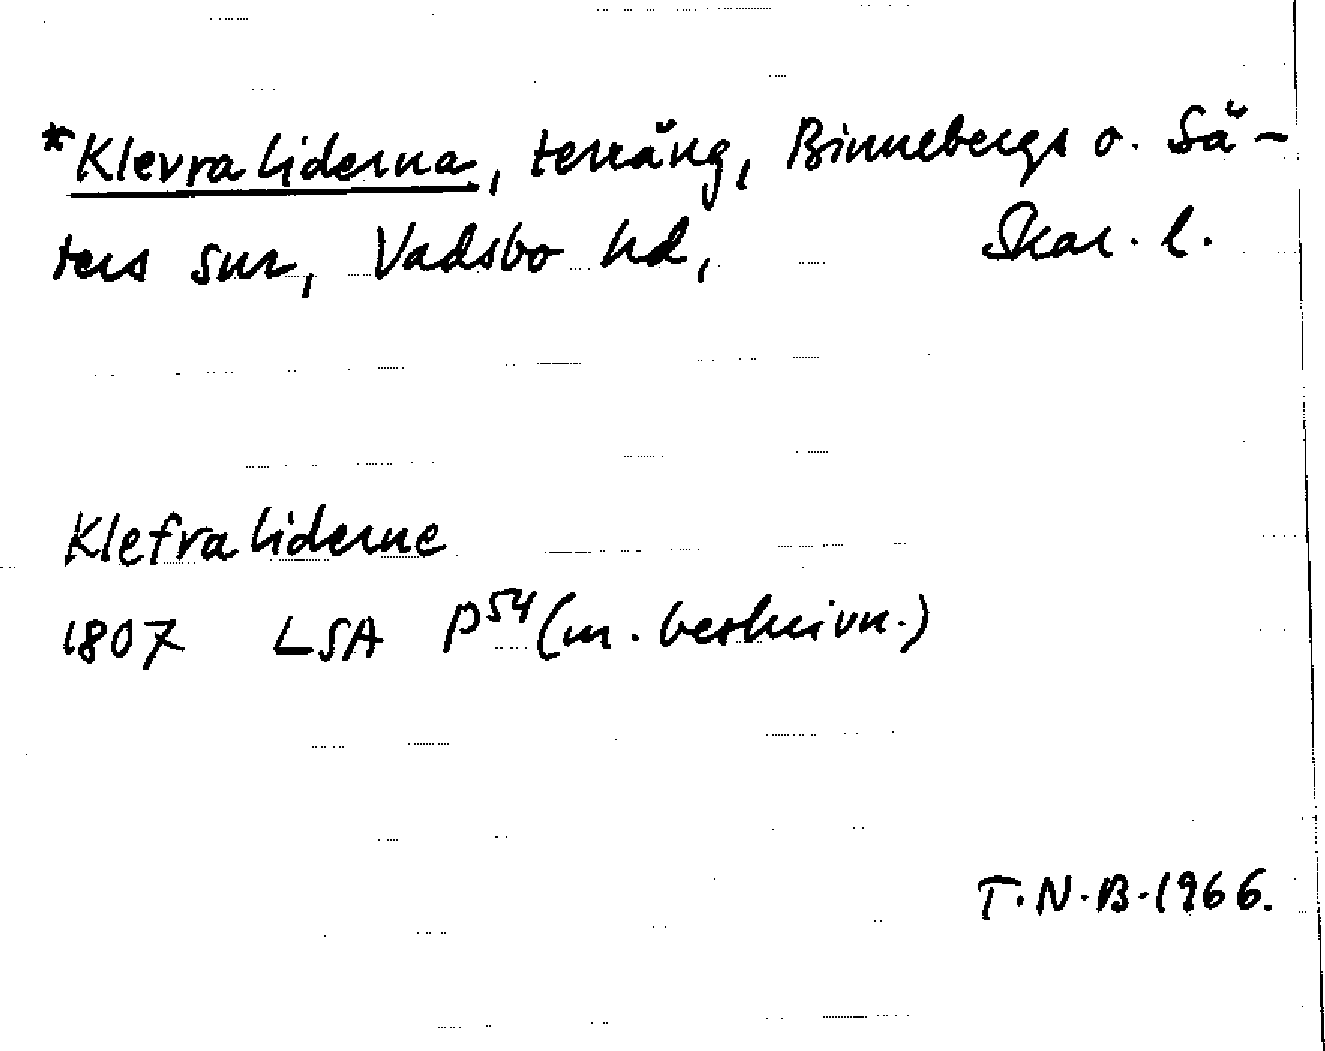 *Klevraliderna, terräng, Binnebergs o. Sä-
ters snr, Vadsbo hd, Skar. l.
Klefraliderne
1807 LSA P54 (m. beskrivn.)
T.N.B. 1966.